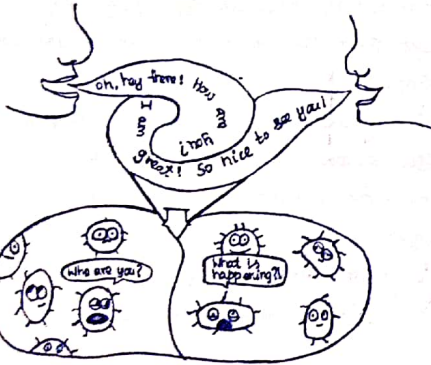 oh, hey there! How are you?
I am great! So nice to see you!
Who are you?
What is
happening?!